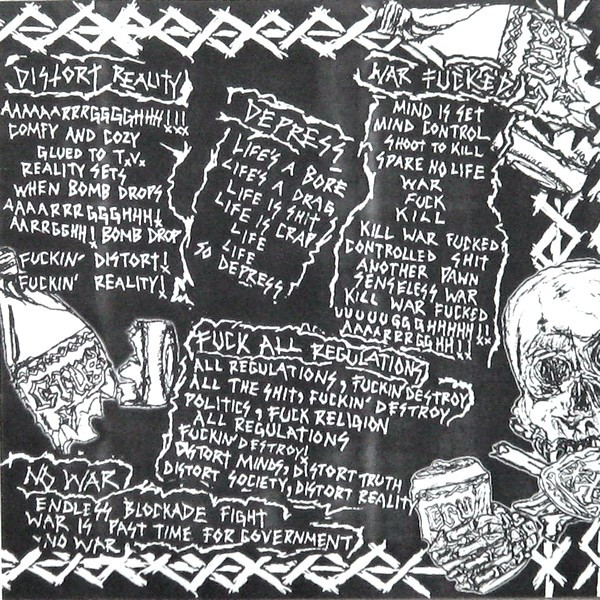 DISTORT REALITY
AAAAAARRRGGGGHHH!!!
COMFY AND COZY
GLUED TO T.V.
REALITY SETS
WHEN BOMB DROPS
AAAARRRGGGHHH!
AARRGGHH! BOMB DROP
FUCKIN' DISTORT!
FUCKIN' REALITY!
DEPRESS
LIFE'S A BORE
LIFE'S A DRAG
LIFE IS SHIT
LIFE IS CRAP
LIFE
LIFE
SO DEPRESS!
WAR FUCKED!
MIND IS SET
MIND CONTROL
SHOOT TO KILL
SPARE NO LIFE
WAR
FUCK
KILL
KILL WAR FUCKED
CONTROLLED SHIT
ANOTHER PAWN
SENSELESS WAR
KILL WAR FUCKED
UUUUUGGGHHHHH!!
AAAARRREGGHH!!
FUCK ALL REGULATIONS
ALL REGULATIONS, FUCKIN' DESTROY
ALL THE SHIT, FUCKIN' DESTROY
POLITICS, FUCK RELIGION
ALL REGULATIONS
FUCKIN' DESTROY!
DISTORT MINDS, DISTORT TRUTH
DISTORT SOCIETY, DISTORT REALITY
NO WAR
ENDLESS BLOCKADE FIGHT
WAR IS PAST TIME FOR GOVERNMENT
NO WAR